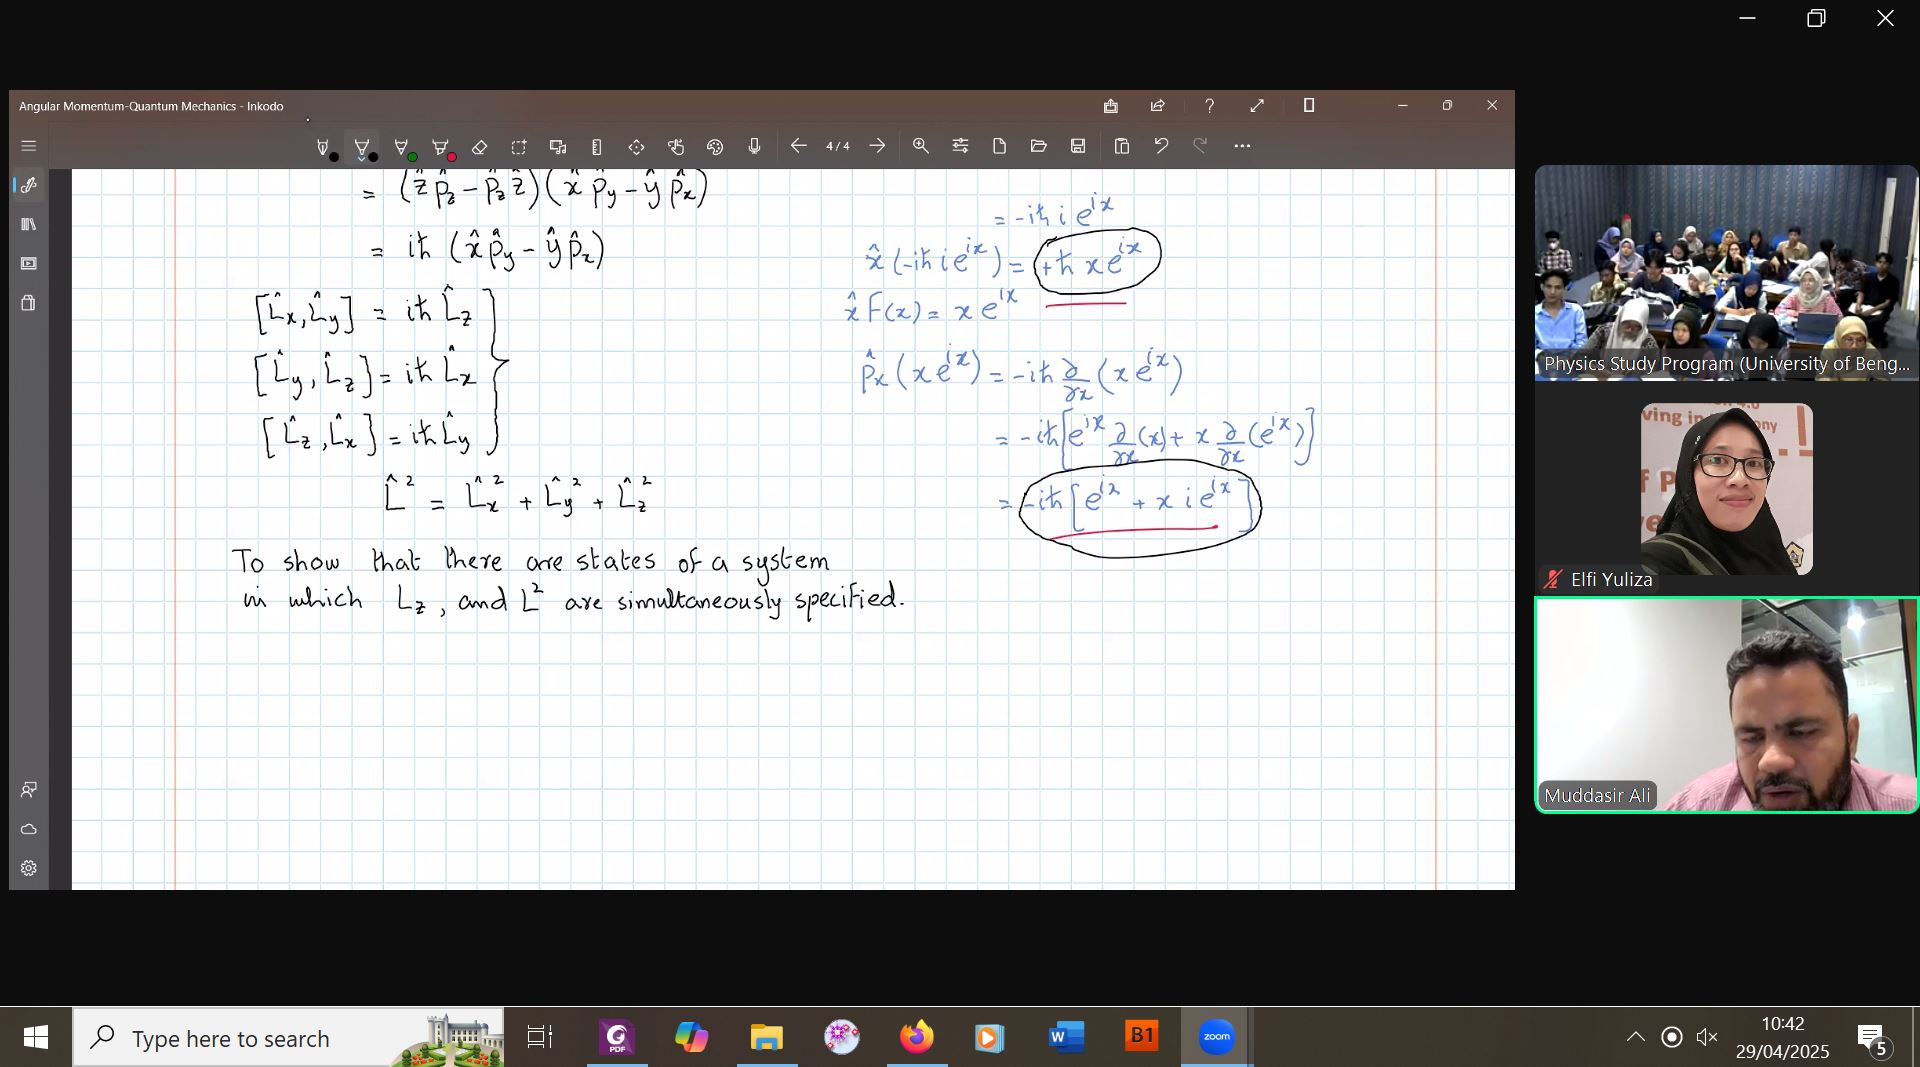 Angular Momentum-Quantum Mechanics - Inkodo
4/4
= (ẑ p̂z - p̂z ẑ)(x̂ p̂y - ŷ p̂x)
= iħ (x̂ p̂y - ŷ p̂x)
[L̂x, L̂y] = iħ L̂z
[L̂y, L̂z] = iħ L̂x
[L̂z, L̂x] = iħ L̂y
L̂² = L̂x² + L̂y² + L̂z²
To show that there are states of a system
in which Lz, and L² are simultaneously specified.
= -iħ i e^ix
x̂ (-iħ i e^ix) = +ħ x e^ix
x̂ F(x) = x e^ix
p̂x (x e^ix) = -iħ ∂/∂x (x e^ix)
= -iħ [e^ix ∂/∂x (x) + x ∂/∂x (e^ix)]
= -iħ [e^ix + x i e^ix]
Physics Study Program (University of Beng...
ving in
ny
Elfi Yuliza
Muddasir Ali
Type here to search
PDF
W
B1
zoom
10:42
29/04/2025
5